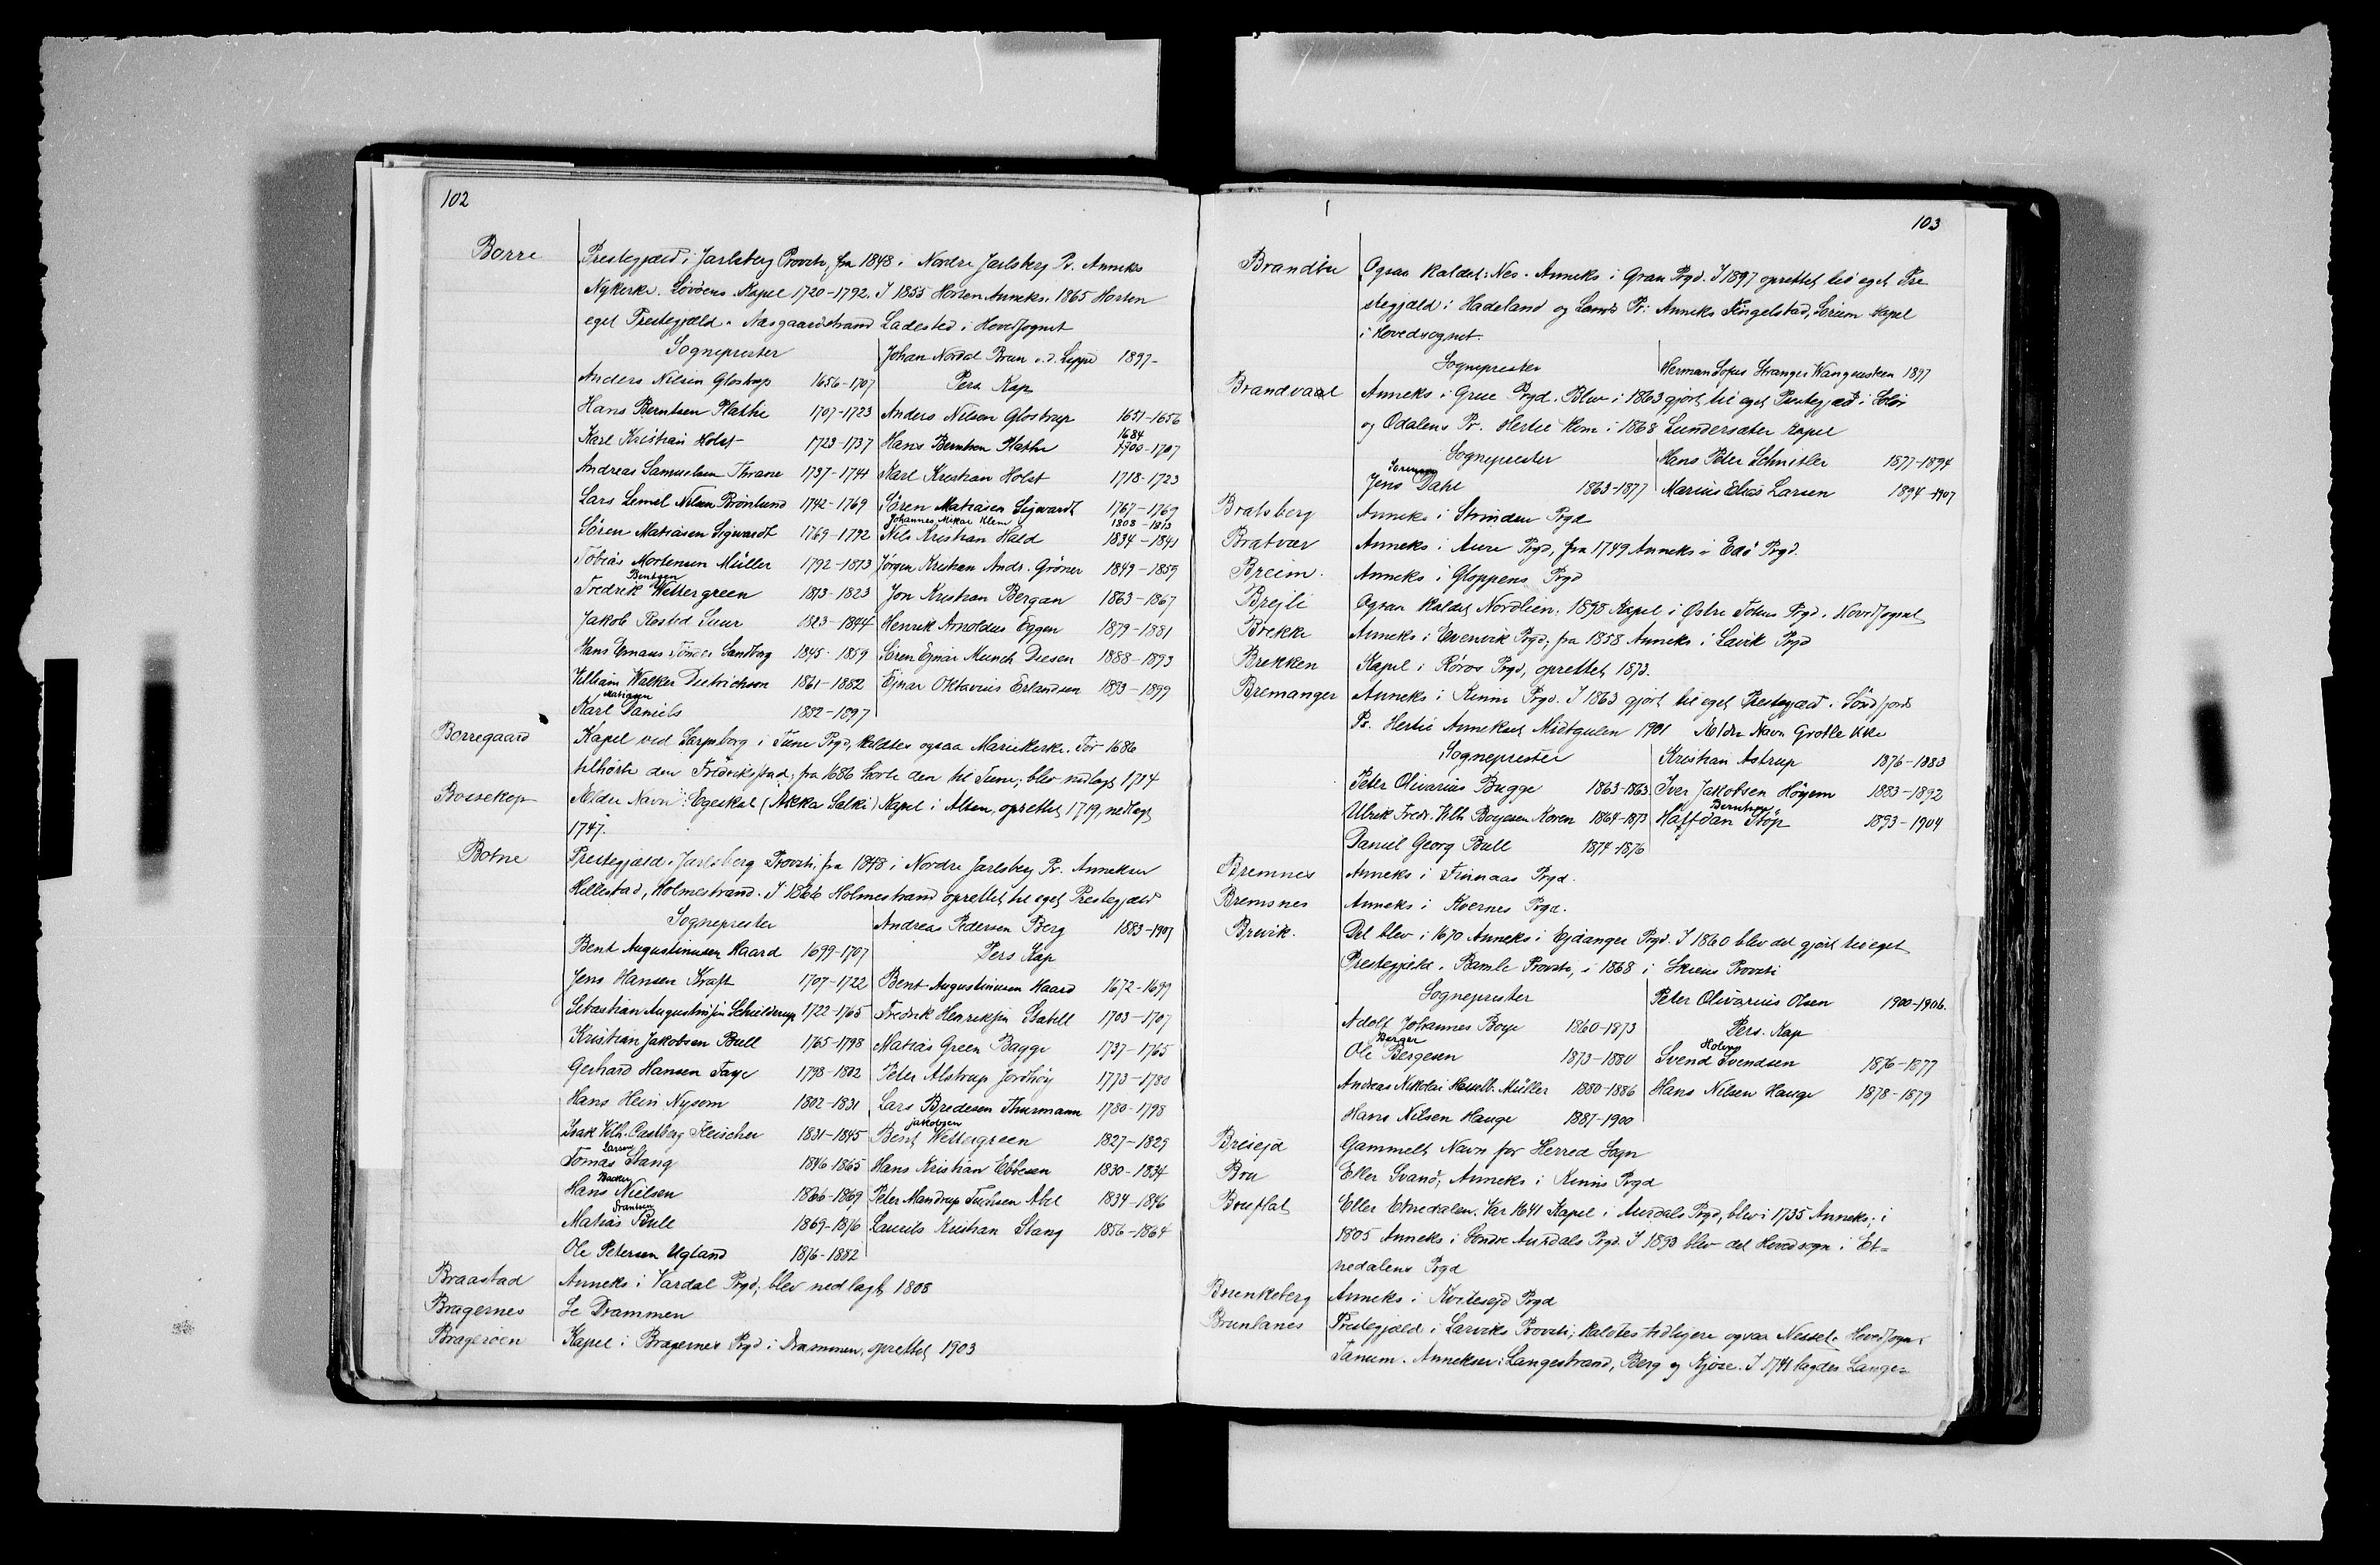 102
Borre Prestegjæld i Jarlsberg Provsti, fra 1848 i Nordre Jarlsberg Pr. Anneks
Nykerke. Løvøens Kapel 1720-1792. I 1855 Horten Anneks. 1865 Horten
eget Prestegjæld. Aasgaardstrand Ladested i HovedSognet
Sogneprester
Anders Nilsen Glostrup 1656-1707
Hans Berntsen Plathe 1707-1723
Karl Kristian Holst 1723-1737
Andreas Samuelsen Thrane 1737-1741
Lars Lemel Nilsen Brönlund 1742-1769
Sören Matiasen Sigwardt 1769-1792
Tobias Mortensen Müller 1792-1813
Bentsen
Fredrik Wettergreen 1813-1823
Jakob Rosted Suur 1823-1844
Hans Emaus Tönder Sandberg 1845-1859
William Walker Dietrichson 1861-1882
Matiasen
Karl Daniels 1882-1897
Johan Nordal Brun v.d. Lippe 1897-
Pers Kap
Anders Nilsen Glostrup 1651-1656
1684
Hans Berntsen Plathe 1700-1707
Karl Kristian Holst 1718-1723
Sören Matiasen Sigwardt 1767-1769
Johannes Mikal Klem 1808-1813
Nils Kristian Hald 1834-1841
Jörgen Kristian Andr. Gröner 1849-1859
Jon Kristian Bergan 1863-1867
Henrik Arnoldus Eggen 1879-1881
Sören Ejnar Munch Diesen 1888-1893
Ejnar Oktavius Erlandsen 1893-1899
Borregaard Kapel ved Sarpsborg i Tune Prgd, kaldtes ogsaa Mariekerke. Før 1686
tilhørte den Fredrikstad; fra 1686 hørte den til Tune; blev nedlagt 1714
Bossekop Ældre Navn: Egeskal (Akka Salki) Kapel i Alten, oprettet 1719, nedlagt
1747.
Botne Prestegjæld i Jarlsberg Provsti; fra 1848 i Nordre Jarlsberg Pr. Annekser
Hillestad, Holmestrand. I 1866 Holmestrand oprettet til eget Prestegjæld
Sogneprester
Bent Augustinusen Maard 1699-1707
Jens Hansen Kraft 1707-1722
Sebastian Augustinsen Schielderup 1722-1765
Kristian Jakobsen Bull 1765-1798
Gerhard Hansen Faye 1798-1802
Hans Hein Nysom 1802-1831
Isak Vilh. Castberg Fleischer 1831-1845
Larsen
Tomas Stang 1846-1865
Backer
Hans Nielsen 1866-1869
Frantsen
Matias Bull 1869-1876
Ole Petersen Ugland 1876-1882
Andreas Pedersen Berg 1883-1907
Pers Kap
Bent Augustinusen Maard 1672-1699
Fredrik Henriksen Isabell 1703-1707
Matias Green Bagge 1737-1765
Peter Alstrup Jordhöy 1773-1780
Lars Bredesen Thurmann 1780-1798
Jakobsen
Bent Wettergreen 1827-1829
Hans Kristian Ebbesen 1830-1834
Peter Mandrup Tuchsen Abel 1834-1846
Laurits Kristian Stang 1856-1864
Braastad Anneks i Vardal Prgd; blev nedlagt 1808
Bragernes Se Drammen
Bragerøen Kapel i Bragernes Prgd i Drammen, oprettet 1903
103
Brandbu Ogsaa kaldet: Nes. Anneks i Gran Prgd. I 1897 oprettet til eget Pre
stegjæld i Hadeland og Lands Pr: Anneks Tingelstad, Sörum Kapel
i Hovedsognet.
Sogneprester
Herman Sofus Stranger Wangensteen 1897
Brandvaal Anneks i Grue Prgd. Blev i 1863 gjort til eget Prestegjæld i Solör
og Odalens Pr. Hertil kom i 1868 Lundersæter Kapel
Sogneprester
Sörensen
Jens Dahl 1863-1877
Hans Peter Schnitler 1877-1894
Marius Elias Larsen 1894-1907
Bratsberg Anneks i Strinden Prgd
Bratvær Anneks i Aure Prgd, fra 1749 Anneks i Edö Prgd.
Breim. Anneks i Gloppens Prgd
Brejli Ogsaa kaldet Nordlien. 1898 Kapel i Østre Totens Prgd. HovedSognet
Brekke Anneks i Evenvik Prgd; fra 1858 Anneks i Lavik Prgd
Brekken Kapel i Röros Prgd, oprettet 1873.
Bremanger Anneks i Kinns Prgd. I 1863 gjort til eget Prestegjæld i Söndfjords
Pr. Hertil Annekset Midtgulen 1901 Ældre Navn Grotle Kke
Sogneprester
Peter Olivarius Bugge 1863-1863
Ulrik Fredr. Vilh Boyesen Koren 1864-1873
Daniel Georg Bull 1874-1876
Kristian Astrup 1876-1883
Iver Jakobsen Höyem 1883-1892
Berntsen
Halfdan Stöp 1893-1904
Bremnes Anneks i Finnaas Prgd.
Bremsnes Anneks i Kvernes Prgd.
Brevik. Det blev i 1670 Anneks i Ejdanger Prgd. I 1860 blev det gjort til eget
Prestegjeld i Bamle Provsti, i 1868 i Skiens Provsti
Sogneprester
Adolf Johannes Boye 1860-1873
Berger
Ole Bergesen 1873-1880
Andreas Nikolai Hesselb. Müller 1880-1886
Hans Nilsen Hauge 1887-1900
Peter Olivarius Olsen 1900-1906.
Pers. Kap
Holm
Svend Svendsen 1876-1877
Hans Nilsen Hauge 1878-1879
Gammelt Navn for Herred Sogn
Bru Eller Svanö; Anneks i Kinns Prgd
Bruflat Eller Etnedalen. Var 1641 Kapel i Aurdals Prgd, blev i 1735 Anneks; i
1805 Anneks i Söndre Aurdals Prgd. I 1893 blev det Hovedsogn i Et-
nedalens Prgd
Brunkeberg Anneks i Kvitesejd Prgd
Brunlanes Prestegjæld i Larviks Provsti; kaldtes tidligere ogsaa Nesset. HovedSogn:
Tanum. Annekser: Langestrand, Berg og Kjose. I 1741 lagdes Lange-